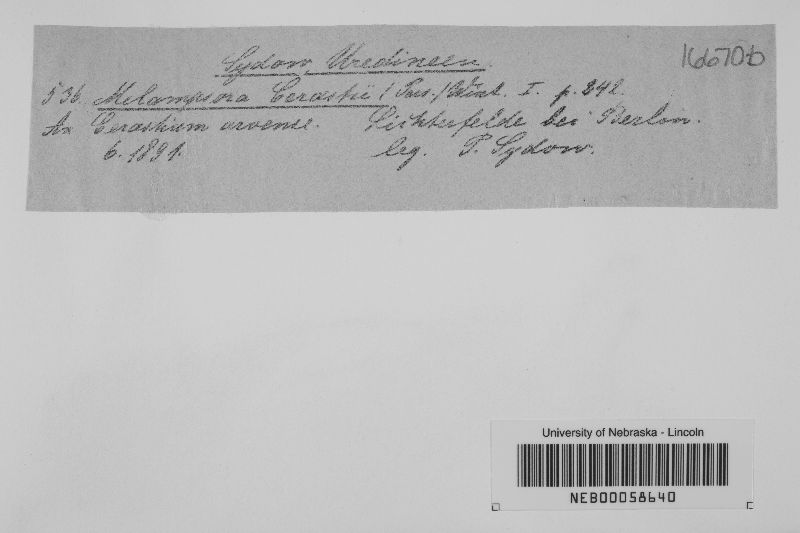 Sydow, Uredineen.
166706
536. Melampsora Cerastii (Pers.) Wint. I. p. 242.
An Cerastium arvense. Lichterfelde bei Berlin.
6. 1891. leg. P. Sydow.
University of Nebraska - Lincoln
NEB00058640